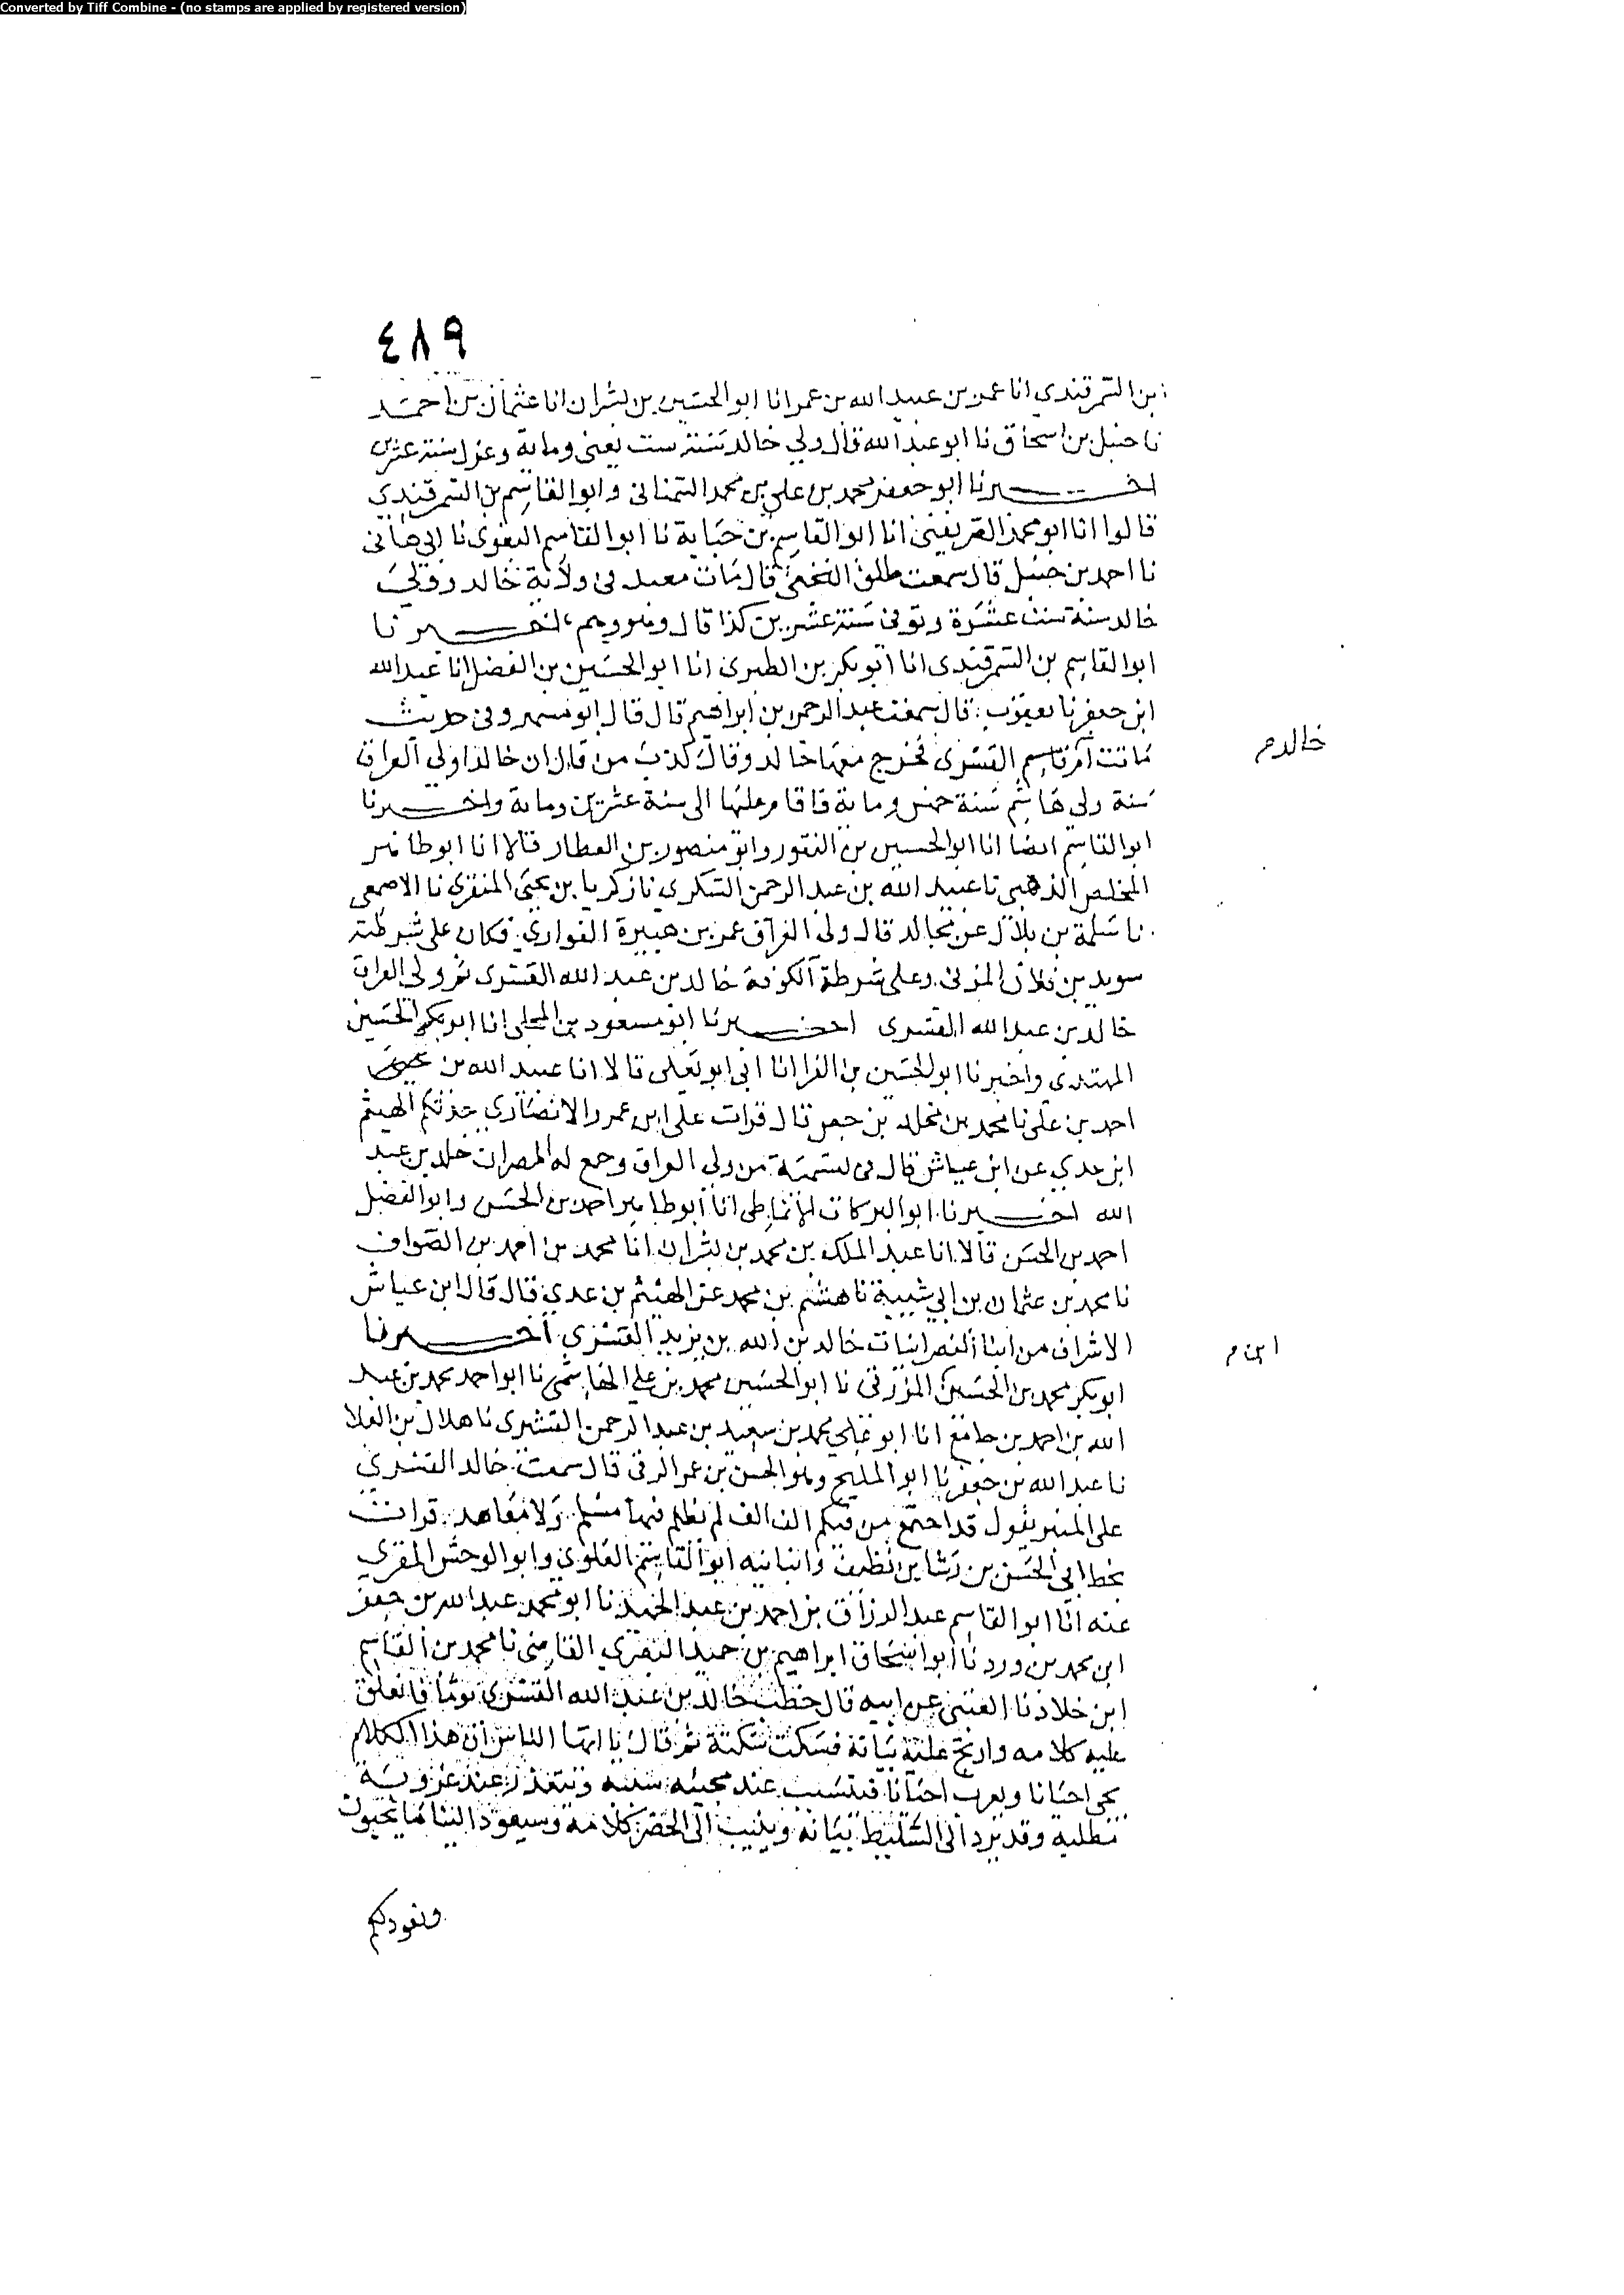 Converted by Tiff Combine - (no stamps are applied by registered version)
٤٨٩
ابن السمرقندي انا عمر بن عبيد الله بن عمر انا ابو الحسين بن بشران انا عثمان بن احمد
نا حنبل بن اسحاق نا ابو عبد الله قال ولي خالد سنة ست يعني وماية وعزل سنة عشرين
اخبرنا ابو جعفر محمد بن علي بن محمد السمناني وابو القاسم بن السمرقندي
قالوا انا ابو محمد الصريفيني انا ابو القاسم بن حبابة نا ابو القاسم البغوي نا ابن هاني
نا احمد بن حنبل قال سمعت طلق النخعي قال مات معبد في ولاية خالد وولي
خالد سنة ست عشرة وتوفي سنة عشرين كذا قال وهو وهم، اخبرنا
ابو القاسم بن السمرقندي انا ابو بكر بن الطبري انا ابو الحسين بن الفضل انا عبد الله
ابن جعفر نا يعقوب قال سمعت عبد الرحمن بن ابراهيم قال قال ابو مسهر وفي حديث
خالد م
ماتت ام قاسم القسري فخرج معها خالد وقال كذب من قال ان خالدا ولي العراق
سنة ولي هاشم سنة خمس وماية فاقام عليها الى سنة عشرين وماية واخبرنا
ابو القاسم ايضا انا ابو الحسين بن النقور وابو منصور بن العطار قالا انا ابو طاهر
المخلص الذهبي نا عبيد الله بن عبد الرحمن السكري نا زكريا بن يحيى المنقري نا الاصمعي
نا سلمة بن بلال عن مجالد قال ولي العراق عمر بن هبيرة الفزاري فكان على شرطته
سويد بن فلان المزني وعلى شرطة الكوفة خالد بن عبد الله القسري ثم ولي العراق
خالد بن عبد الله القسري اخبرنا ابو مسعود بن المجلي انا ابو بكر الحسين
المهتدي واخبرنا ابو الحسين بن الفرا انا ابي ابو يعلى قالا انا عبيد الله بن
احمد بن علي نا محمد بن مخلد بن جعفر قال قرات على ابن عمرو الانصاري حدثكم الهيثم
ابن عدي عن ابن عياش قال في تسمية من ولي العراق وجمع له المصران خالد بن عبد
الله اخبرنا ابو البركات الانماطي انا ابو طاهر احمد بن الحسن وابو الفضل
احمد بن الحسن قالا انا عبد الملك بن محمد بن بشران انا محمد بن احمد بن الصواف
نا محمد بن عثمان بن ابي شيبة نا هشم بن محمد عن الهيثم بن عدي قال قال ابن عياش
ابن م
الاشراف من ابنا النصرانيات خالد بن الله بن يزيد القسري اخبرنا
ابو بكر محمد بن الحسين المزرفي نا ابو الحسين محمد بن علي الهاشمي نا ابو احمد محمد بن عبد
الله بن احمد بن جامع انا ابو علي محمد بن سعيد بن عبد الرحمن القشيري نا هلال بن العلا
نا عبد الله بن جعفر نا ابو المليح وهو الحسن بن عمر الرقي قال سمعت خالد القسري
على المنبر يقول قد اجتمع من فيكم الف الف لم يظلم فيها مسلم ولا معاهد قرات
بخط ابي الحسن بن رشا بن نظيف وانبانيه ابو القاسم العلوي وابو الوحش المقري
عنه انا ابو القاسم عبد الرزاق بن احمد بن عبد الحميد نا ابو محمد عبد الله بن جعفر
ابن محمد بن ورد نا ابو اسحاق ابراهيم بن حميد البصري القاضي نا محمد بن القاسم
ابن خلاد نا العتبي عن ابيه قال خطب خالد بن عبد الله القسري يوما فانغلق
عليه كلامه وارتج عليه بيانه فسكت سكتة ثم قال يا ايها الناس ان هذا الكلام
يجي احيانا ويعزب احيانا فيتسبب عند مجيئه سببه ويتعذر عند عزوبه
مطلبه وقد يرد الى السليط بيانه وينيب الى الحصر كلامه وسيعود الينا ما تحبون
ونعود لكم